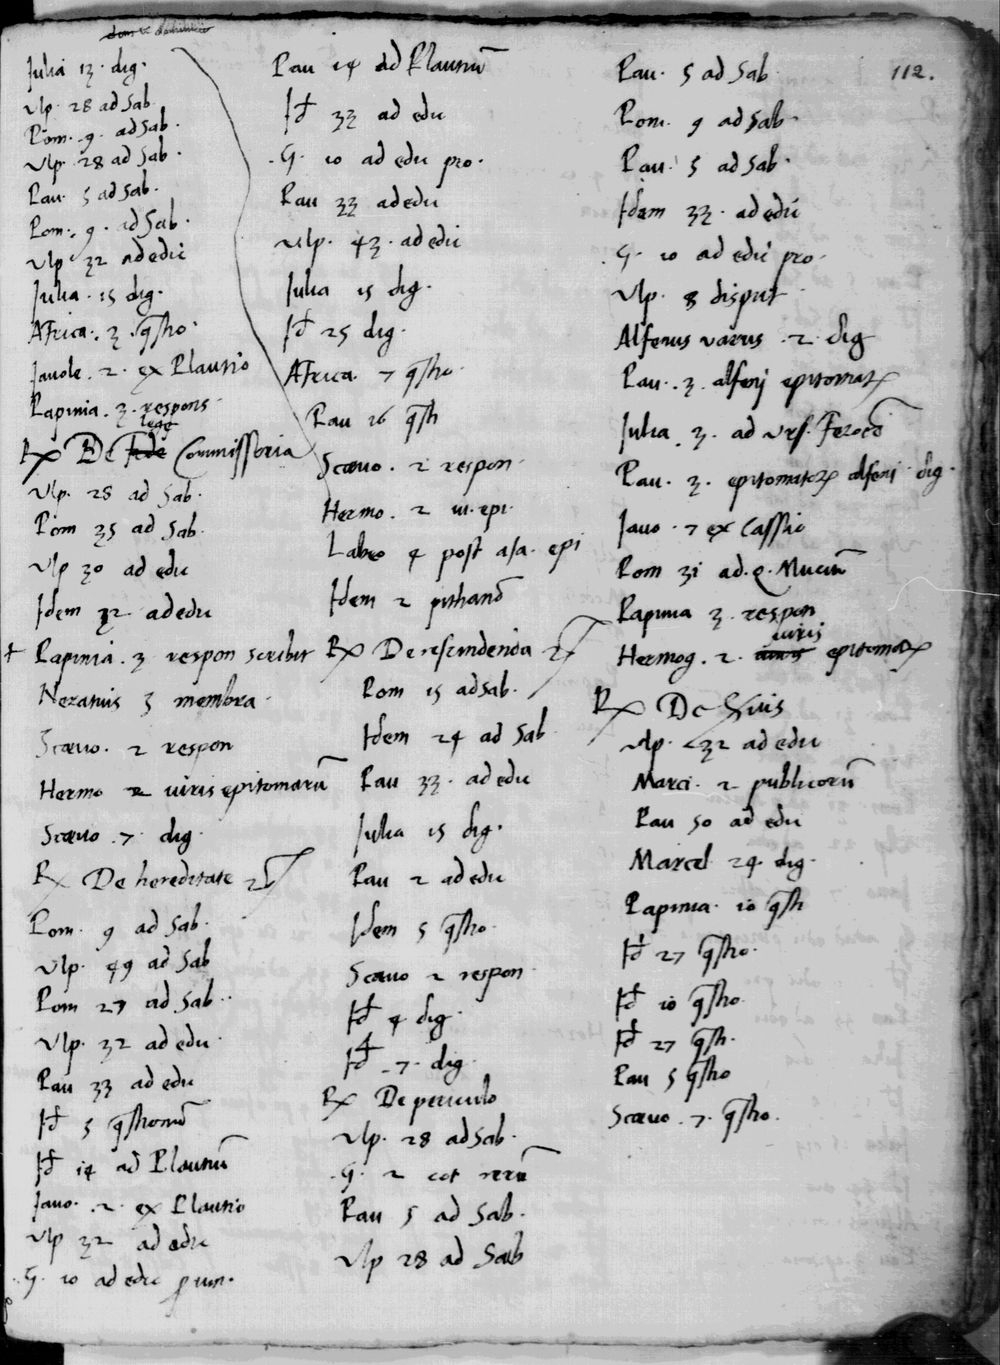 112.
Julia 13. dig.
Vlp. 28 ad Sab.
Pom. 9. ad Sab.
Vlp. 28 ad Sab.
Pau. 5 ad Sab.
Pom. 9. ad Sab.
Vlp 32 ad edu
Julia. 15 dig.
Africa. 3. q̃stio.
Jauole. 2. ex Plautio
Papinia. 3. respons
℞ De lege Commissoria
Vlp. 28 ad Sab.
Pom 35 ad Sab.
Vlp 30 ad edu
Idem 32 ad edu
+ Papinia. 3 respon scribit
Neratius 5 membra.
Scæuo. 2 respon
Hermo 2 uiris epitomarũ
Scæuo. 7. dig.
℞ De hereditate
Pom. 9 ad Sab.
Vlp. 49 ad Sab
Pom 27 ad Sab.
Vlp. 32 ad edu.
Pau 33 ad edu
Id 5 q̃stionũ
Id 14 ad Plautiũ
Jauo. 2. ex Plautio
Vlp 32 ad edu
G. 10 ad edu
Pau 14 ad Plautiũ
Id 33 ad edu
G. 10 ad edu pro.
Pau 33 ad edu
Vlp. 43. ad edu
Julia 15 dig.
Id 25 dig.
Africa. 7 q̃stio.
Pau 16 q̃sti
Scæuo. 2 respon.
Hermo. 2 iu. epi.
Labeo 4 post a Ia. epi
Idem 2 pithanõ
℞ De rescindenda
Pom 15 ad Sab.
Idem 24 ad Sab
Pau 33. ad edu
Julia 15 dig.
Pau 2 ad edu
Idem 5 q̃stio.
Scæuo 2 respon.
Id 4 dig.
Id 7. dig.
℞ De periculo
Vlp. 28 ad Sab.
G. 2 cot rerũ
Pau 5 ad Sab.
Vlp 28 ad Sab
Pau. 5 ad Sab
Pom. 9 ad Sab.
Pau. 5 ad Sab.
Idem 33. ad edu
G. 10 ad edu pro.
Vlp. 8 disput.
Alfenus varus. 2. dig
Pau. 3. alfenj epitomat
Julia. 3. ad Urs. Ferocẽ
Pau. 3. epitomatoꝝ alfenj dig.
Jauo. 7 ex Cassio
Pom 31 ad. Q. Muciũ
Papinia 3. respon
Hermog. 2. iuris epitomaꝝ
℞ De
Vlp. 32 ad edu
Marci. 2 publicorũ
Pau 50 ad edu
Marcel 24 dig.
Papinia. 10 q̃sti
Id 27 q̃stio.
Id 10 q̃stio
Id 27 q̃sti.
Pau 5 q̃stio
Scæuo. 7. q̃stio.